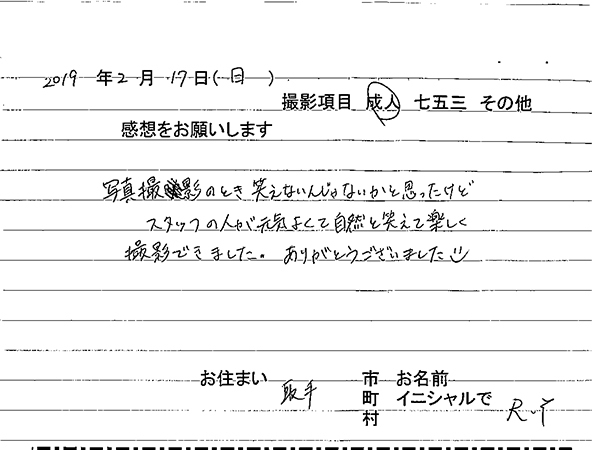 2019 年 2 月 17 日 ( 日 )
撮影項目 成人 七五三 その他
感想をお願いします
写真撮影のとき笑えないんじゃないかと思ったけど
スタッフの人が元気よくて自然と笑えて楽しく
撮影できました。ありがとうございました
お住まい 取手 市 お名前
町 イニシャルで
村